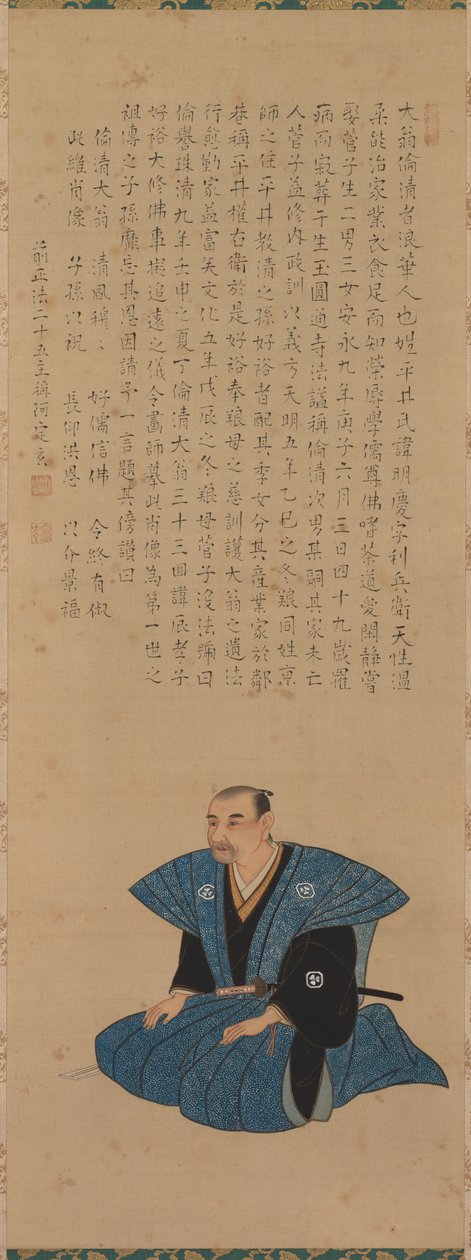 大翁倫清者浪華人也姓平井氏諱明慶字利兵衛天性溫
柔能治家業衣食足而知榮辱學儒尊佛嗜茶道愛閑靜嘗
娶菅子生二男三女安永九年庚子六月三日四十九歲罹
病而寂葬于生玉圓通寺法謚稱倫清次男某嗣其家未亡
人菅子益修內政訓以義方天明五年乙巳之冬孃同姓京
師之住平井教清之孫好裕者配其季女分其產業家於鄰
巷稱平井權右衛於是好裕奉孃母之慈訓護大翁之遺法
行愈勤家益富矣文化五年戊辰之冬孃母菅子沒法號曰
倫譽珠清九年壬申之夏丁倫清大翁三十三回諱辰孝子
好裕大修佛事擬追遠之儀令畫師摹此肖像為第一世之
祖傳之子孫靡忘其恩因請予一言題其傍讚曰
倫清大翁 清風穆々 好儒信佛 令終有俶
此維肖像 子孫以祝 長仰洪恩 以介景福
前正法二十五主稱阿定玄